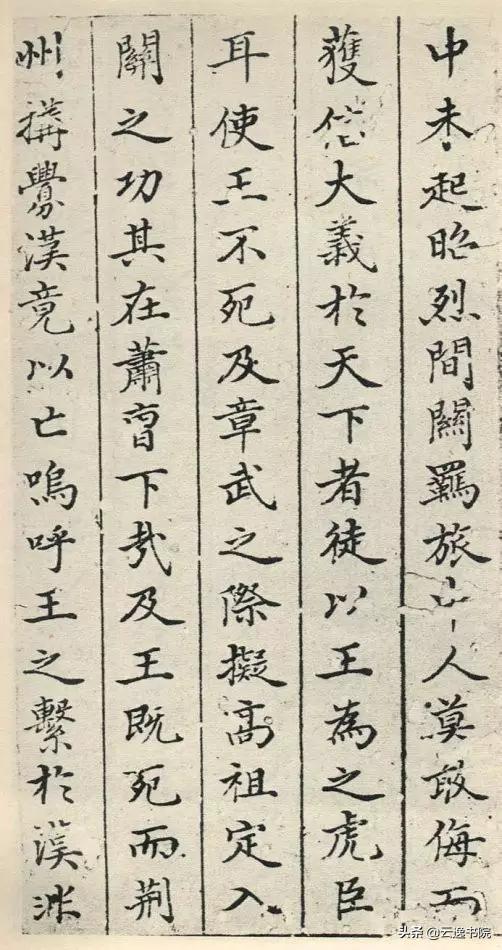 中未起昭烈間關羈旅中人莫敢侮而
獲信大義於天下者徒以王為之虎臣
耳使王不死及章武之際擬高祖定入
關之功其在蕭曹下哉及王既死而荆
州搆釁漢竟以亡嗚呼王之繫於漢非
头条@云逸书院